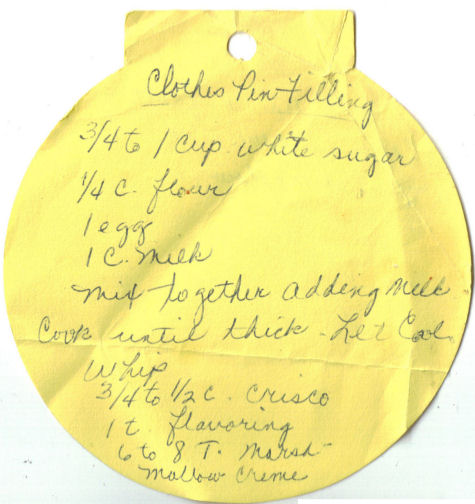 Clothes Pin Filling
3/4 to 1 cup white sugar
1/4 c. flour
1 egg
1 c. milk
mix together adding milk
Cook until thick - Let Cool.
Whip
3/4 to 1/2 c. crisco
1 t. flavoring
6 to 8 T. marsh-
mallow creme